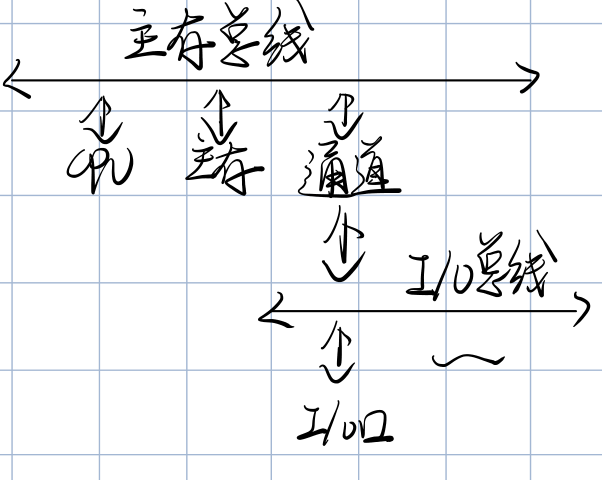 主存总线
CPU 主存 通道
I/O总线
I/O口